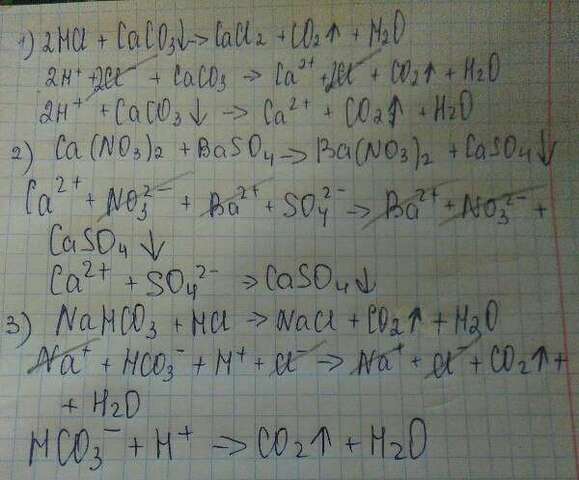 1) 2HCl + CaCO3↓ → CaCl2 + CO2↑ + H2O
2H+ + 2Cl- + CaCO3 → Ca2+ + 2Cl- + CO2↑ + H2O
2H+ + CaCO3↓ → Ca2+ + CO2↑ + H2O
2) Ca(NO3)2 + BaSO4 → Ba(NO3)2 + CaSO4↓
Ca2+ + NO3 2- + Ba2+ + SO4 2- → Ba2+ + NO3 2- +
CaSO4↓
Ca2+ + SO4 2- → CaSO4↓
3) NaHCO3 + HCl → NaCl + CO2↑ + H2O
Na+ + HCO3- + H+ + Cl- → Na+ + Cl- + CO2↑ +
+ H2O
HCO3- + H+ → CO2↑ + H2O